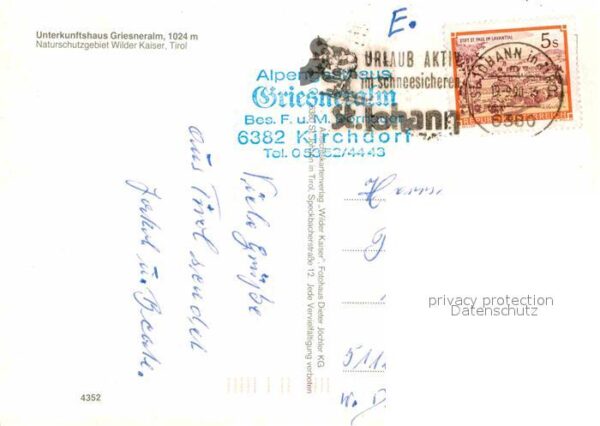 Unterkunftshaus Griesneralm, 1024 m
Naturschutzgebiet Wilder Kaiser, Tirol
E.
STIFT ST. PAUL IM LAVANTTAL
5 S
REPUBLIK ÖSTERREICH
URLAUB AKTIV
im schneesicheren
St. Johann
JOHANN in
6380
Griesneralm
Bes. F. u. M.
6382 Kirchdorf
Tel. 05352/4443
Viele Grüße
aus Tirol senden
u. Beate.
"Wilder Kaiser". Fotohaus Dieter Jöchler KG
in Tirol, Speckbacherstraße 12. Jede Vervielfältigung verboten
511
W. D
privacy protection
Datenschutz
4352